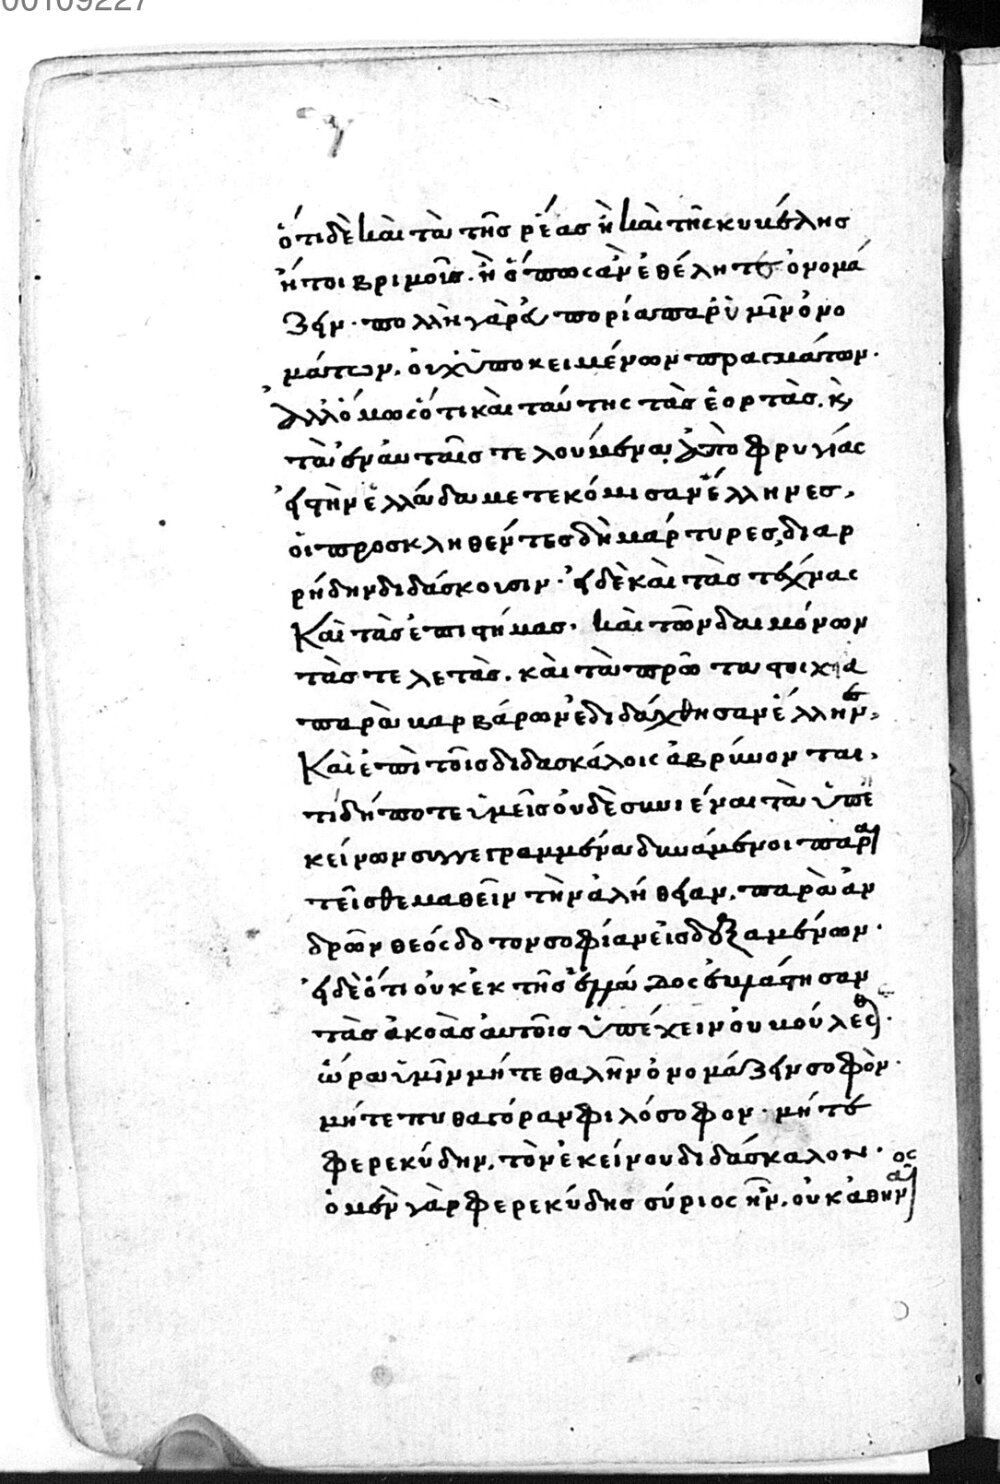 00109227
ὅτι δὲ καὶ τὰ τῆς ῥέας ἢ καὶ τῆς κυκέλης
ἤτοι βριμοῖς. ἢ ὅπως ἂν ἐθέλητε ὀνομά
ζειν. πολλὴ γὰρ ἀπορία παρ' ὑμῖν ὀνο
μάτων. οὐχ ὑποκειμένων πραγμάτων.
ἀλλ' ὅμως ὅτι καὶ ταύτης τὰς ἑορτὰς. κ
τὰ ἐν αὐταῖς τελούμενα ἀπὸ φρυγίας
εἰς τὴν ἑλλάδα μετεκόμισαν ἕλληνες,
οἱ προσκληθέντες δὴ μάρτυρες, διαρ
ρήδην διδάσκουσιν. εἰ δὲ καὶ τὰς τέχνας
καὶ τὰς ἐπιστήμας. καὶ τῶν δαιμόνων
τὰς τελετὰς. καὶ τὰ πρῶτα στοιχεῖα
παρὰ βαρβάρων ἐδιδάχθησαν ἕλλην
καὶ ἐπὶ τοῖς διδασκάλοις ἁβρύνονται,
τί δήποτε ὑμεῖς οὐδὲ συνιέναι τὰ ὑπ' ἐ
κείνων συγγεγραμμένα δυνάμενοι παραι
τεῖσθε μαθεῖν τὴν ἀλήθειαν. παρὰ ἀν
δρῶν θεόσδοτον σοφίαν εἰσδεξαμένων.
εἰ δὲ ὅτι οὐκ ἐκ τῆς ἑλλάδος ἐβλάστησαν
τὰς ἀκοὰς αὐτοῖς ὑπέχειν οὐ βούλεσθ
ὥρα ὑμῖν μήτε θαλῆν ὀνομάζειν σοφὸν.
μήτε πυθαγόραν φιλόσοφον. μήτε
φερεκύδην. τὸν ἐκείνου διδάσκαλον.
ὁ μὲν γὰρ φερεκύδης σύριος ἦν. οὐκ ἀθηναῖος